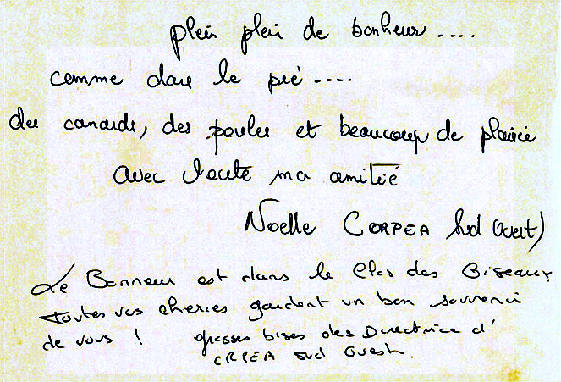 plein plein de bonheur ....
comme dans le pré ....
des canards, des poules et beaucoup de plaisir
avec toute ma amitié
Noelle CORPEA Sud Ouest)
Le Bonheur est dans le Clos des Oiseaux
toutes vos chéries gardent un bon souvenir
de vous ! grosses bises des Directrice d'
ORPEA Sud Ouest.